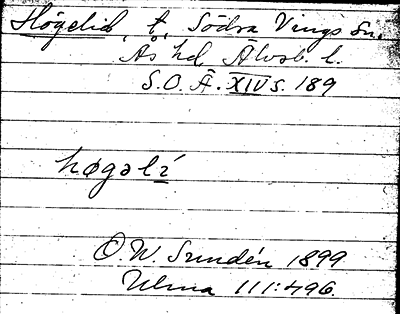 Högelid, t., Södra Vings sn.
Ås hd Älvsb. l.
S.O.Ä. XIV s. 189
høgəlí
O.W. Sundén 1899
Ulma 111:496.